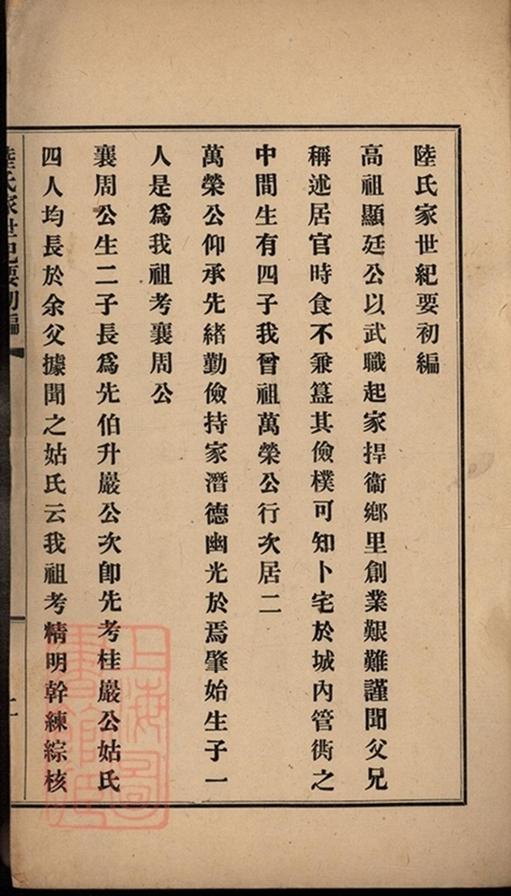 陸氏家世紀要初編
高祖顯廷公以武職起家捍衞鄉里創業艱難謹聞父兄
稱述居官時食不兼簋其儉樸可知卜宅於城內管衖之
中間生有四子我曾祖萬榮公行次居二
萬榮公仰承先緒勤儉持家潛德幽光於焉肇始生子一
人是爲我祖考襄周公
襄周公生二子長爲先伯升巖公次卽先考桂巖公姑氏
四人均長於余父據聞之姑氏云我祖考精明幹練綜核
陸氏家世紀要初編
上海圖書館藏